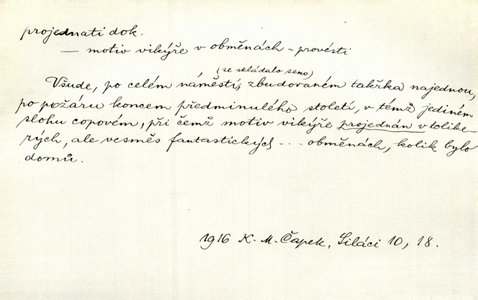 projednati dok.
— motiv vikýře v obměnách – provésti
(se skládalo seno)
Všude, po celém náměstí, zbudovaném takřka najednou,
po požáru koncem předminulého století, v témž jediném
slohu copovém, při čemž motiv vikýře projednán v tolike-
rých, ale vesměs fantastických ... obměnách, kolik bylo
domů.
1916 K. M. Čapek, Siláci 10, 18.